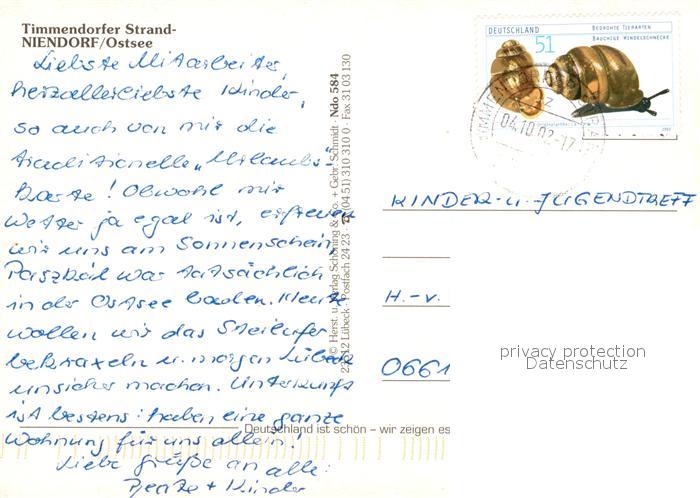 Timmendorfer Strand-
NIENDORF/Ostsee
Liebste Mitarbeiter,
herzallerliebste Kinder,
so auch von mir die
traditionelle „Urlaubs"-
Karte! Obwohl mir
Wetter ja egal ist, erfreuen
wir uns am Sonnenschein,
war tatsächlich
in der Ostsee baden. Heute
wollen wir das Steilufer
bekraxeln u. morgen Lübeck
unsicher machen. Unterkunft
ist bestens: haben eine ganze
Wohnung für uns allein!
Liebe Grüße an alle:
Beate + Kinder
Deutschland ist schön – wir zeigen es
© Herst. u. Verlag Schöning & Co. + Gebr. Schmidt · Ndo 584
Lübeck · Postfach 24 23 · ☎ (04 51) 310 310 0 · Fax 31 03 130
DEUTSCHLAND
51
BEDROHTE TIERARTEN
BAUCHIGE WINDELSCHNECKE
2002
04.10.02-17
KINDER- u. JUGENDTREFF
H.-v.
0661
privacy protection
Datenschutz